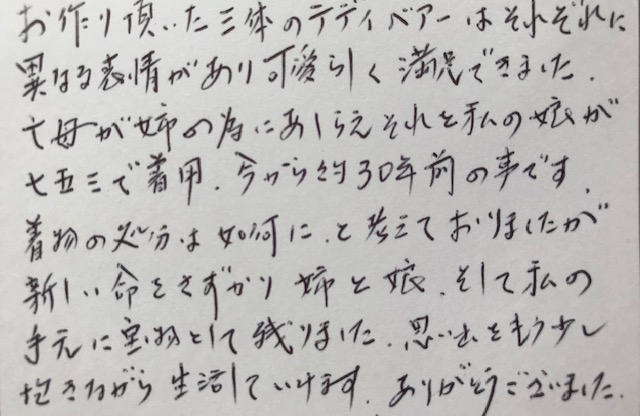 お作り頂いた三体のテディベアーはそれぞれに
異なる表情があり可愛らしく満足できました。
亡母が姉の為にあしらえそれを私の娘が
七五三で着用、今から約30年前の事です。
着物の処分は如何に、と考えておりましたが
新しい命をさずかり姉と娘、そして私の
手元に宝物として残りました。思い出をもう少し
抱きながら生活していけます。ありがとうございました。